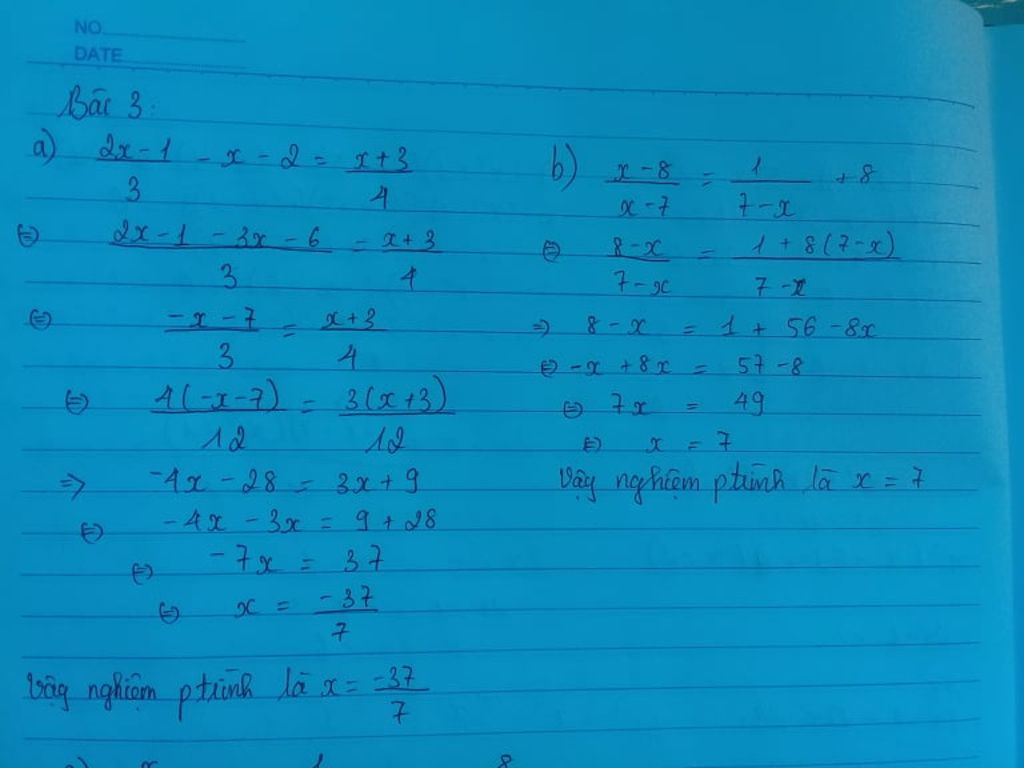 NO.
DATE
Bài 3:
a) (2x - 1)/3 - x - 2 = (x + 3)/4
⇔ (2x - 1 - 3x - 6)/3 = (x + 3)/4
⇔ (-x - 7)/3 = (x + 3)/4
⇔ 4(-x - 7)/12 = 3(x + 3)/12
⇒ -4x - 28 = 3x + 9
⇔ -4x - 3x = 9 + 28
⇔ -7x = 37
⇔ x = -37/7
Vậy nghiệm ptrình là x = -37/7
b) (x - 8)/(x - 7) = 1/(7 - x) + 8
⇔ (8 - x)/(7 - x) = (1 + 8(7 - x))/(7 - x)
⇒ 8 - x = 1 + 56 - 8x
⇔ -x + 8x = 57 - 8
⇔ 7x = 49
⇔ x = 7
Vậy nghiệm ptrình là x = 7